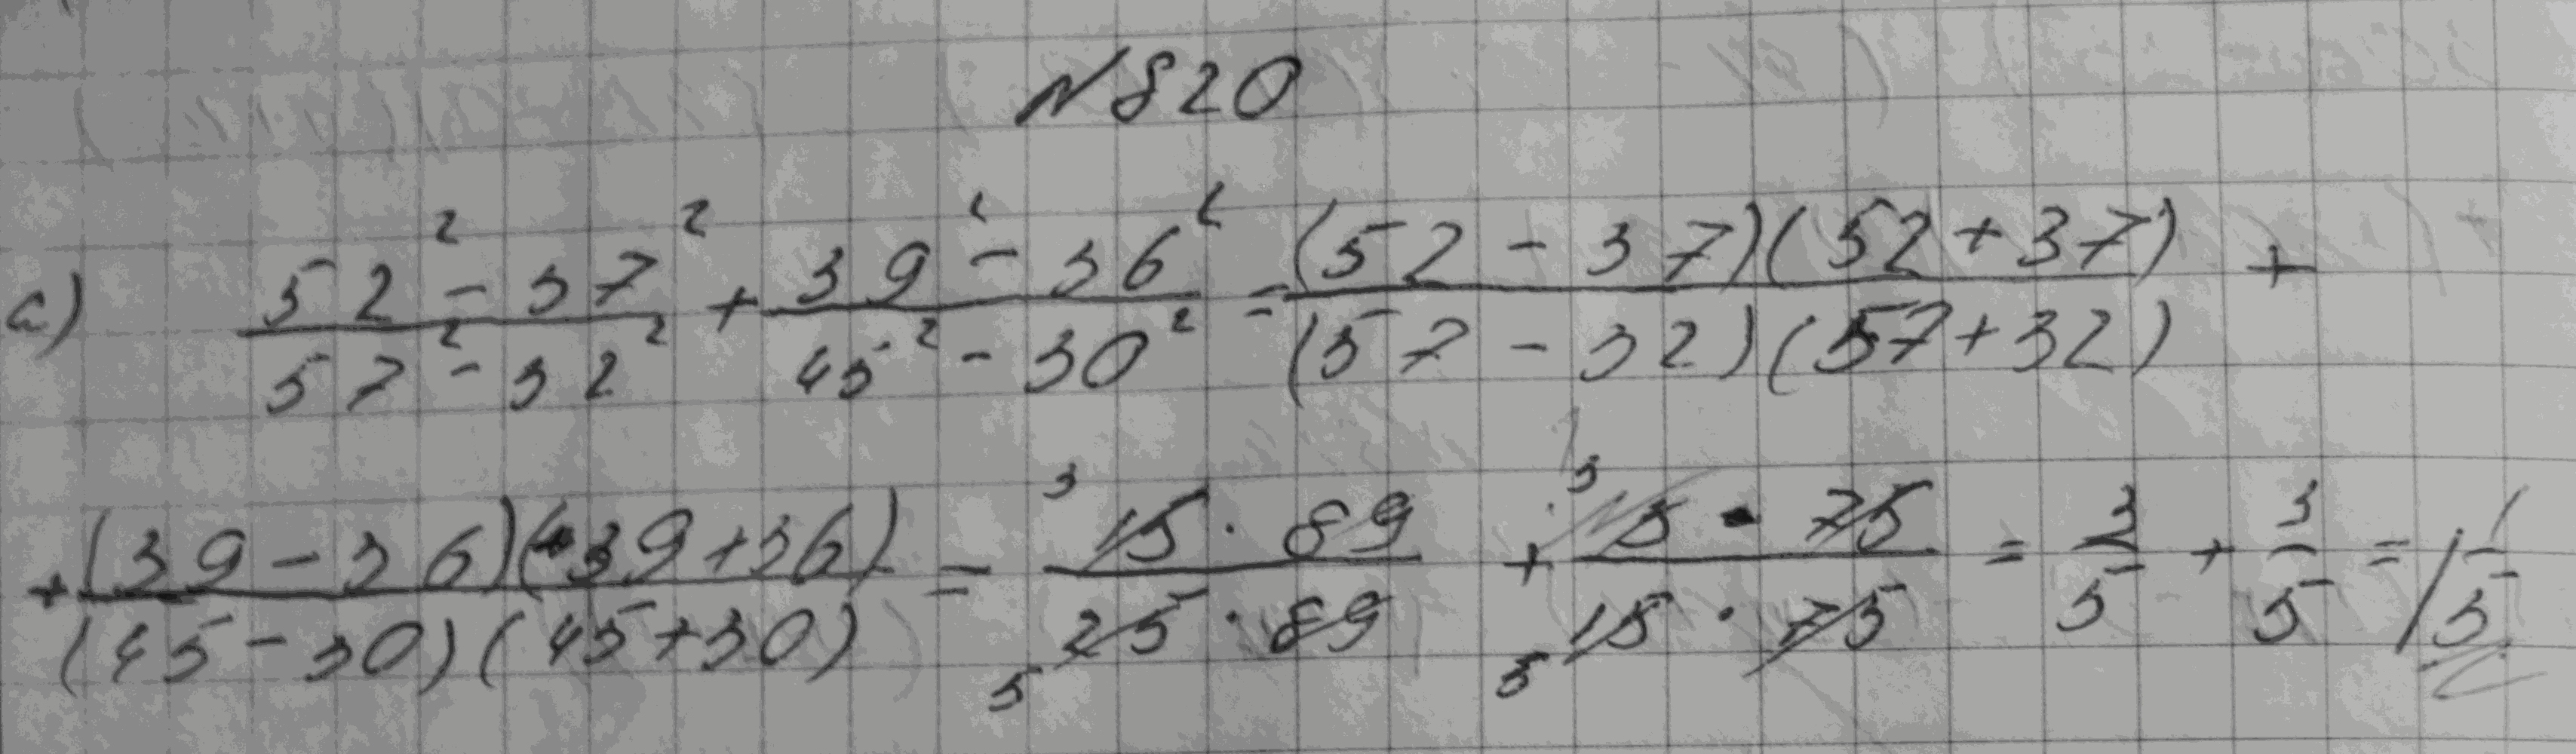 №820
а) (52² - 37²)/(57² - 32²) + (39² - 36²)/(45² - 30²) = ((52 - 37)(52 + 37))/((57 - 32)(57 + 32)) +
+ ((39 - 36)(39 + 36))/((45 - 30)(45 + 30)) = (15 · 89)/(25 · 89) + (3 · 75)/(15 · 75) = 3/5 + 3/5 = 1 1/5